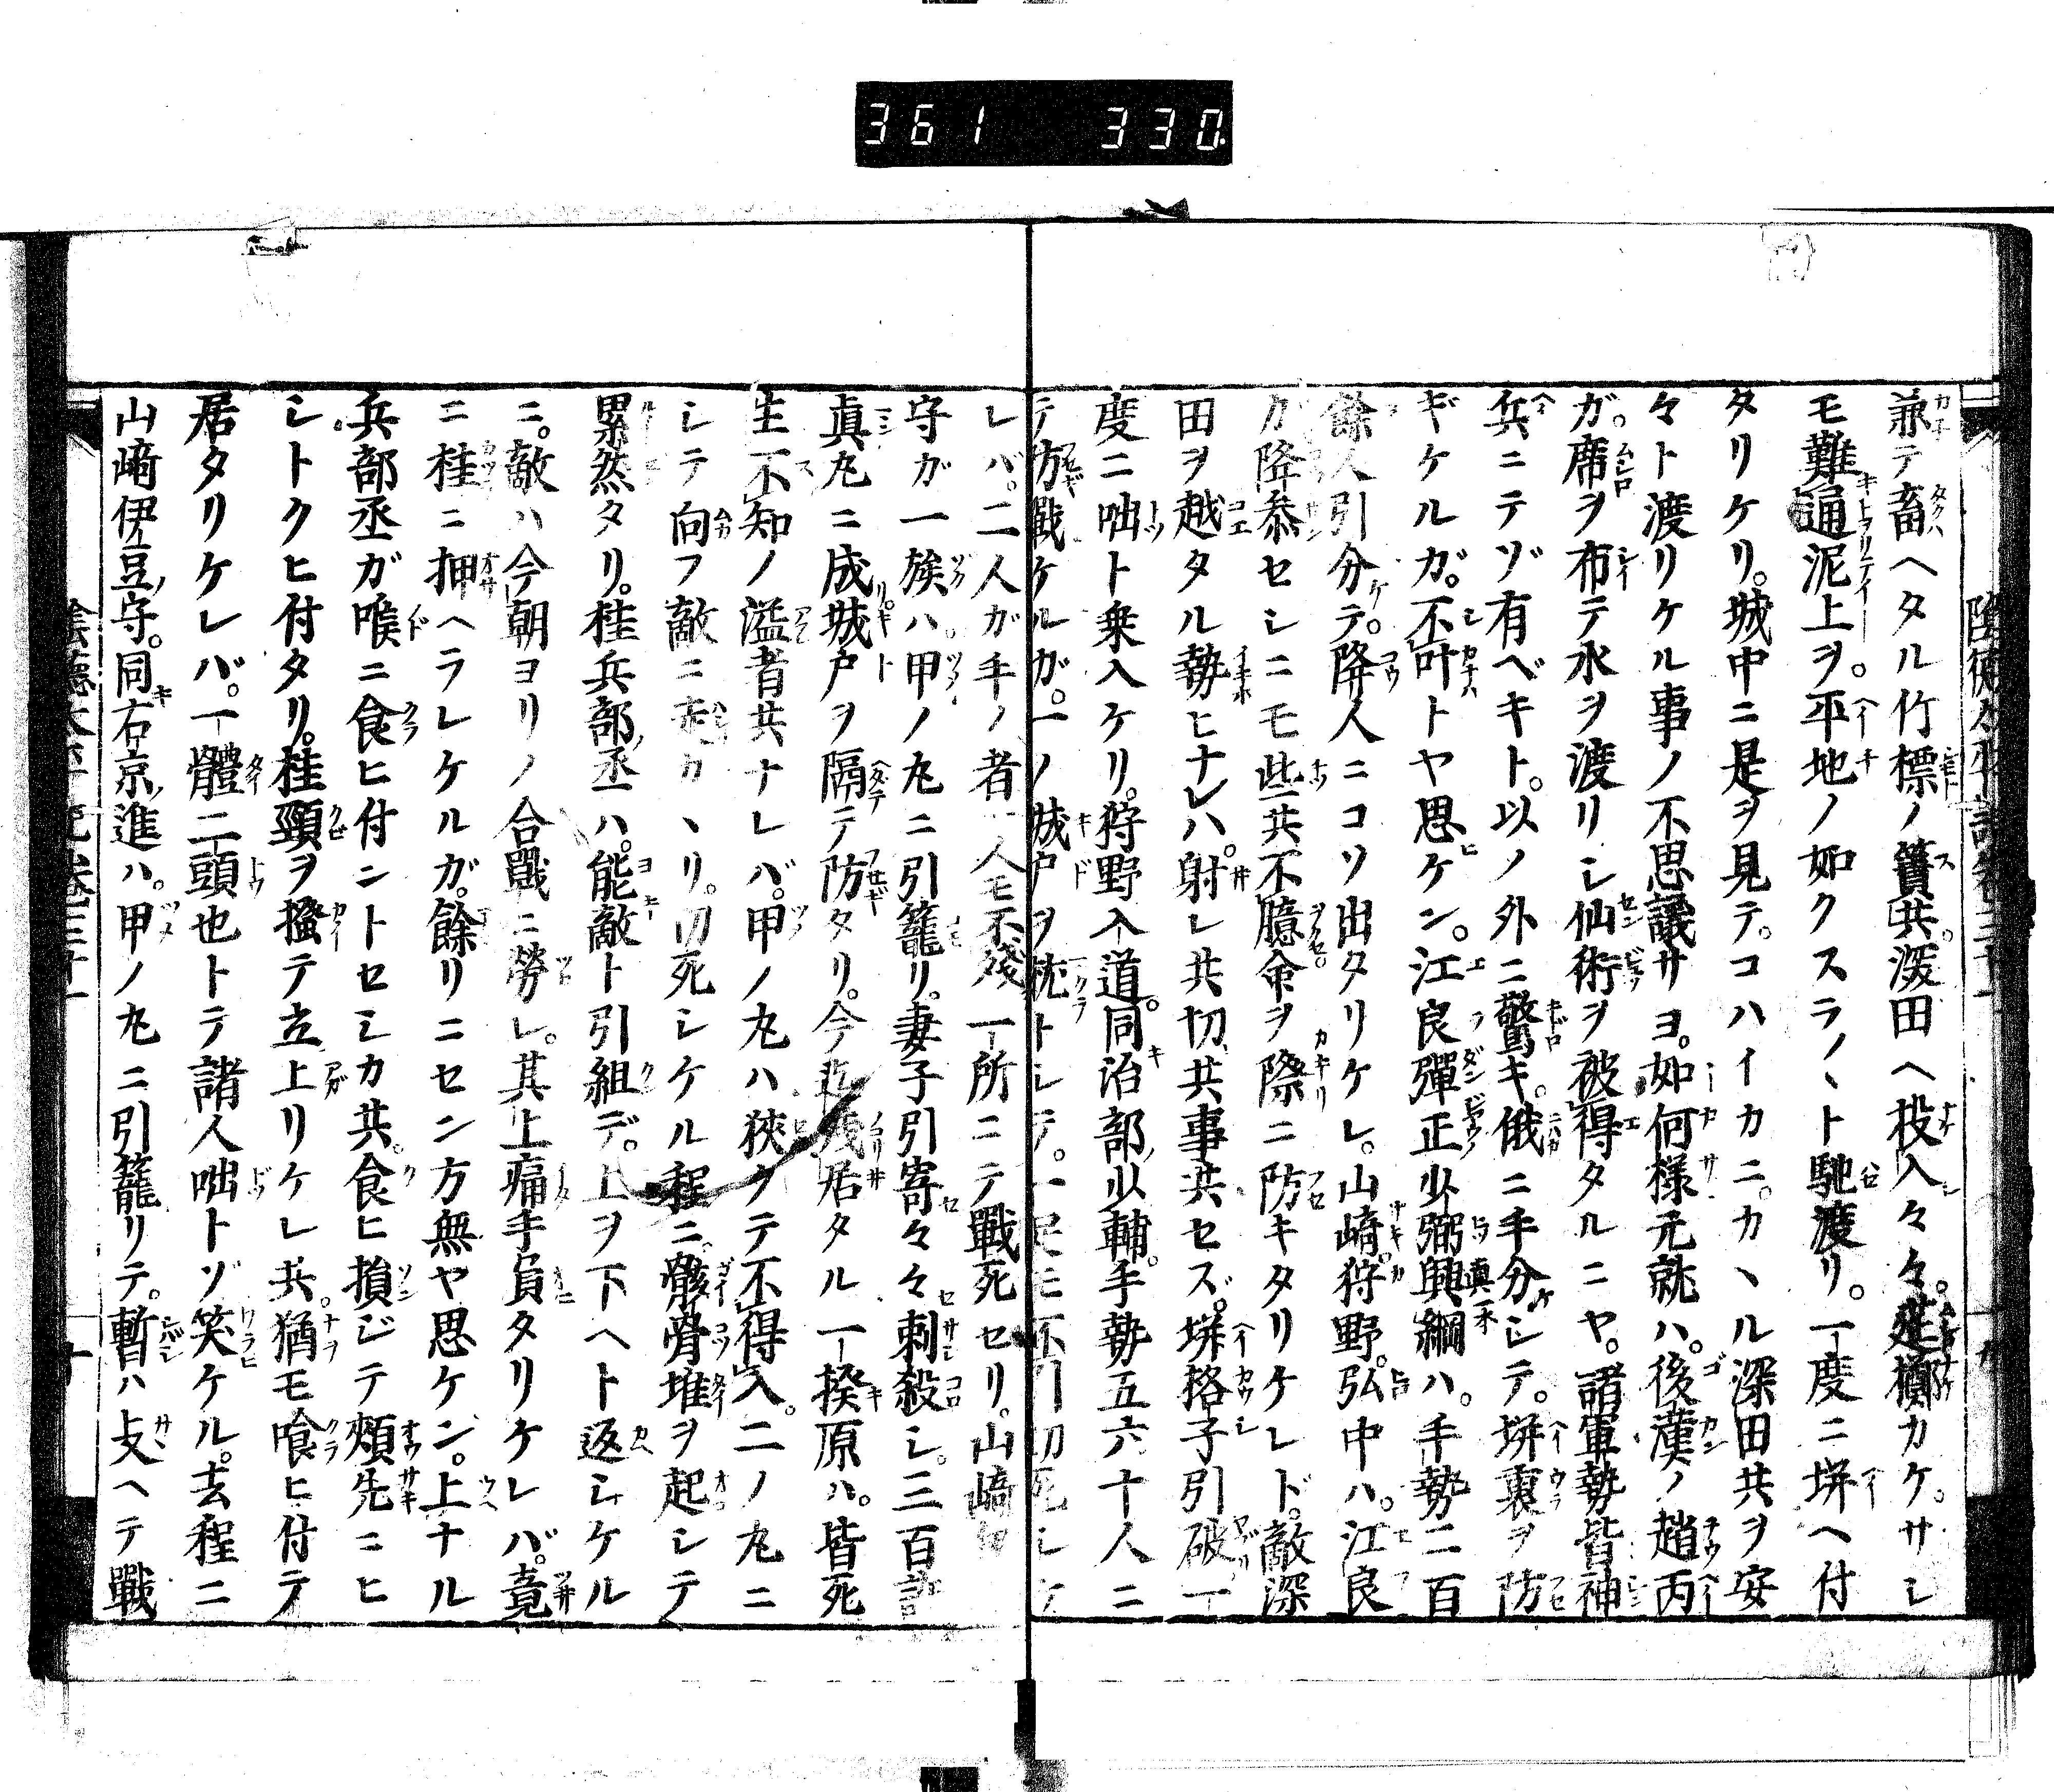 361 330
兼テ畜ヘタル竹標ノ簀共深田ヘ投入々々。莚擲カケ。サシ
モ難通泥上ヲ。平地ノ如クスラ〳〵ト馳渡リ。一度ニ塀ヘ付
タリケリ。城中ニ是ヲ見テ。コハイカニ。カヽル深田共ヲ安
々ト渡リケル事ノ不思議サヨ。如何様元就ハ。後漢ノ趙丙
ガ。席ヲ布テ水ヲ渡リシ仙術ヲ被得タルニヤ。諸軍勢皆神
兵ニテゾ有ベキト。以ノ外ニ驚キ。俄ニ手分シテ。塀裏ヲ防
ギケルガ。不叶トヤ思ケン。江良彈正少弼興綱ハ。手勢二百
餘人引分テ。降人ニコソ出タリケレ。山崎。狩野。弘中ハ。江良
ガ降参セシニモ些共不臆命ヲ際ニ防キタリケレド。敵深
田ヲ越タル勢ヒナレハ。射レ共切共事共セズ。塀格子引破一
度ニ咄ト乗入ケリ。狩野入道。同治部少輔。手勢五六十人ニ
テ防戰ケルガ。一ノ城戸ヲ枕トシテ。一足モ不引切死シケ
レバ。二人ガ手ノ者一人モ不残一所ニテ戰死セリ。山崎伊
守ガ一族ハ。甲ノ丸ニ引籠リ。妻子引寄々々刺殺シ。三百計
眞丸ニ成城戸ヲ隔テ防タリ。今迄残居タル一揆原ハ。皆死
生不知ノ溢者共ナレバ。甲ノ丸ハ狹クテ不得入。二ノ丸ニ
シテ向フ敵ニ カヽリ。切死シケル程ニ。骸骨堆ヲ起シテ
累然タリ。桂兵部丞ハ。能敵ト引組デ。上ヲ下ヘト返シケル
ニ。敵ハ今朝ヨリノ合戰ニ勞レ。其上痛手負タリケレバ。竟
ニ桂ニ押ヘラレケルガ。餘リニセン方無ヤ思ケン。上ナル
兵部丞ガ喉ニ食ヒ付ントセシカ共。食ヒ損ジテ頬先ニヒ
シトクヒ付タリ。桂頸ヲ搔テ立上リケレ共。猶モ喰ヒ付テ
居タリケレバ。一體二頭也トテ諸人咄トゾ笑ケル。去程ニ
山崎伊豆守。同右京進ハ。甲ノ丸ニ引籠リテ。暫ハ支ヘテ戰